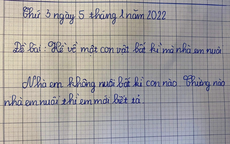 Thứ 3 ngày 5 tháng 1 năm 2022
Đề bài: Kể về một con vật bất kì mà nhà em nuôi
Nhà em không nuôi bất kì con nào. Chừng nào
nhà em nuôi thì em mới biết tả.